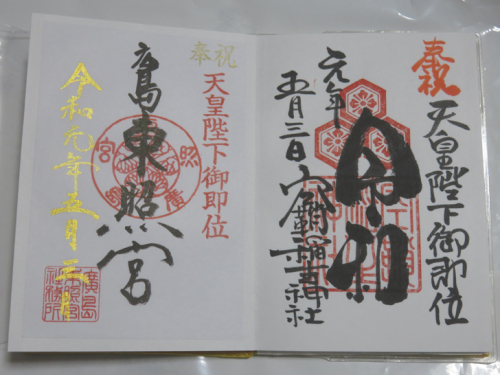 奉祝
天皇陛下御即位
令和
元年
五月三日
空鞘稲生神社
奉祝
天皇陛下御即位
廣島東照宮
令和元年五月三日
廣島
東照宮
社務所